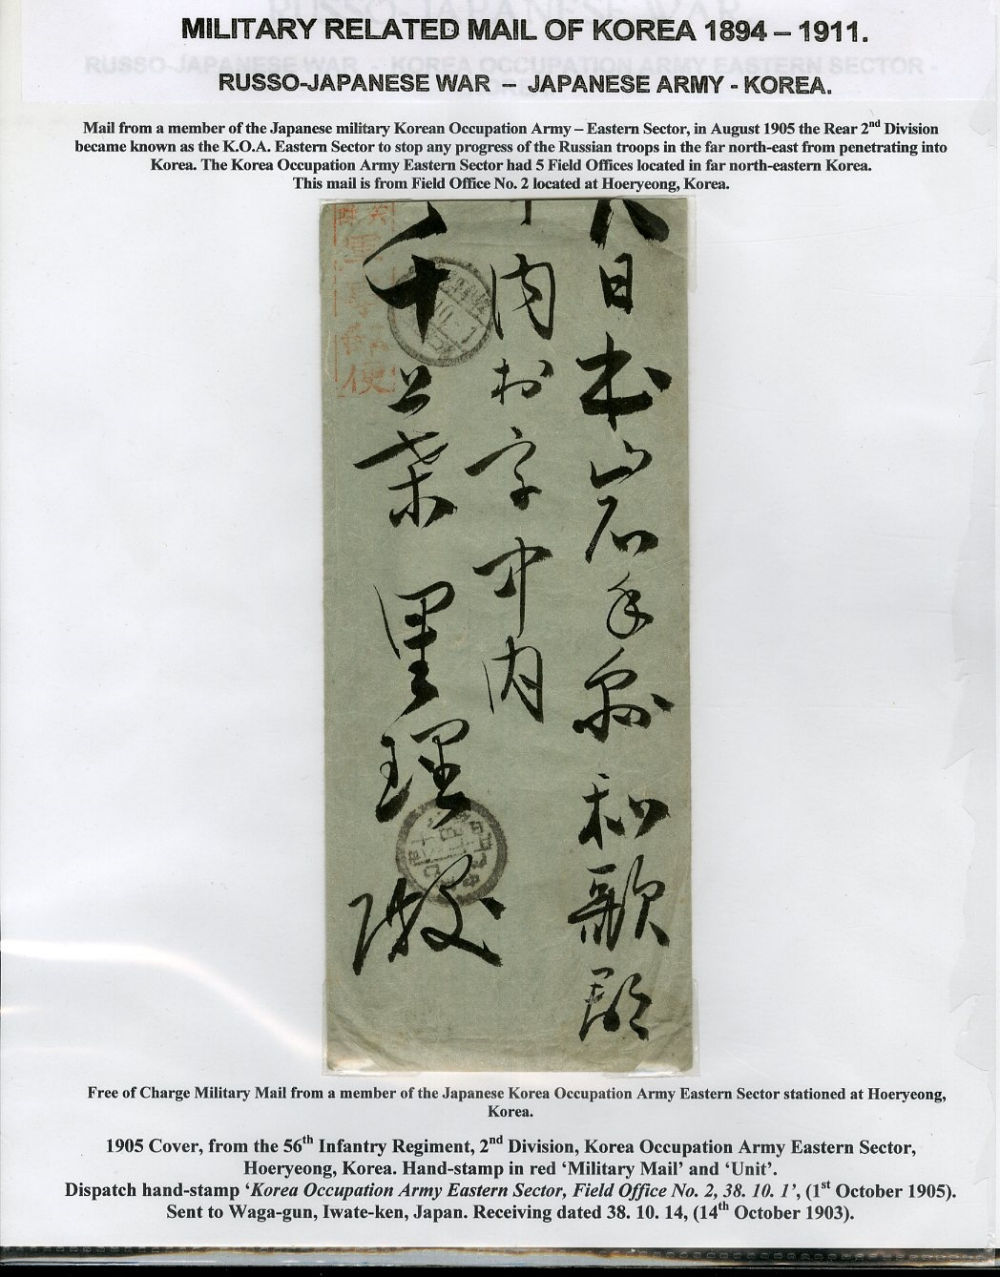 MILITARY RELATED MAIL OF KOREA 1894 – 1911.
RUSSO-JAPANESE WAR – JAPANESE ARMY - KOREA.
Mail from a member of the Japanese military Korean Occupation Army – Eastern Sector, in August 1905 the Rear 2nd Division
became known as the K.O.A. Eastern Sector to stop any progress of the Russian troops in the far north-east from penetrating into
Korea. The Korea Occupation Army Eastern Sector had 5 Field Offices located in far north-eastern Korea.
This mail is from Field Office No. 2 located at Hoeryeong, Korea.
大日本岩手縣和歌郡
十内村字中内
千葉 里理殿
軍事郵便
Free of Charge Military Mail from a member of the Japanese Korea Occupation Army Eastern Sector stationed at Hoeryeong,
Korea.
1905 Cover, from the 56th Infantry Regiment, 2nd Division, Korea Occupation Army Eastern Sector,
Hoeryeong, Korea. Hand-stamp in red ‘Military Mail’ and ‘Unit’.
Dispatch hand-stamp ‘Korea Occupation Army Eastern Sector, Field Office No. 2, 38. 10. 1’, (1st October 1905).
Sent to Waga-gun, Iwate-ken, Japan. Receiving dated 38. 10. 14, (14th October 1903).